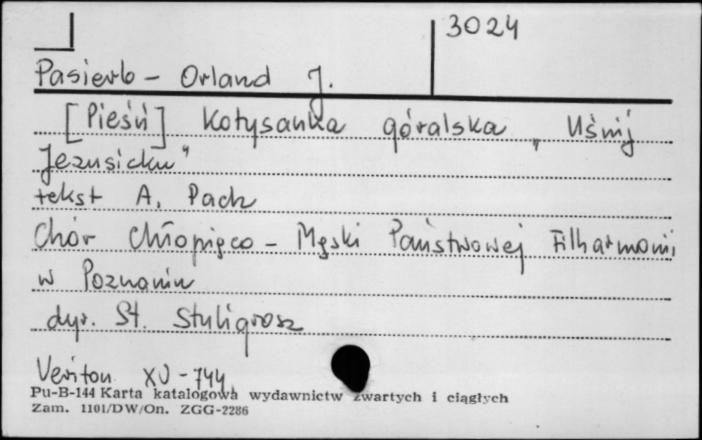 3024
Pasierb - Orland J.
[Pieśń] Kołysanka góralska „Uśnij
Jezusicku"
tekst A. Pach
Chór Chłopięco - Męski Państwowej Filharmonii
w Poznaniu
dyr. St. Stuligrosz
Veriton XV-744
Pu-B-144 Karta katalogowa wydawnictw zwartych i ciągłych
Zam. 1101/DW/On. ZGG-2286